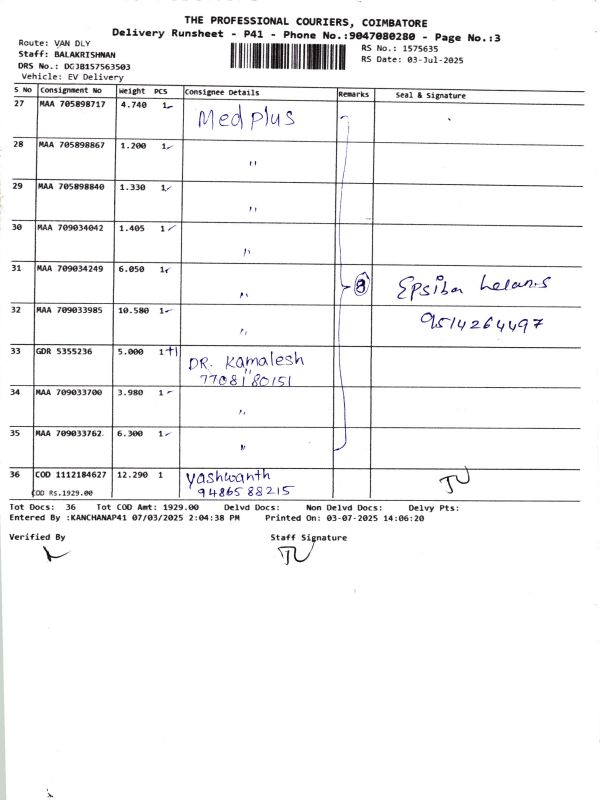 THE PROFESSIONAL COURIERS, COIMBATORE
Delivery Runsheet - P41 - Phone No.:9047080280 - Page No.:3
Route: VAN DLY
Staff: BALAKRISHNAN
DRS No.: DGJB157563503
Vehicle: EV Delivery
RS No.: 1575635
RS Date: 03-Jul-2025
S No Consignment No Weight PCS Consignee Details Remarks Seal & Signature
27 MAA 705898717 4.740 1 Med plus
28 MAA 705898867 1.200 1 "
29 MAA 705898840 1.330 1 "
30 MAA 709034042 1.405 1 "
31 MAA 709034249 6.050 1 "
Epsiba
32 MAA 709033985 10.580 1 "
9514264497
33 GDR 5355236 5.000 1+1 DR. Kamalesh
7708180151
"
34 MAA 709033700 3.980 1 "
35 MAA 709033762 6.300 1 "
36 COD 1112184627 12.290 1 Yashwanth
COD Rs.1929.00 9486588215
Tot Docs: 36 Tot COD Amt: 1929.00 Delvd Docs: Non Delvd Docs: Delvy Pts:
Entered By :KANCHANAP41 07/03/2025 2:04:38 PM Printed On: 03-07-2025 14:06:20
Verified By Staff Signature